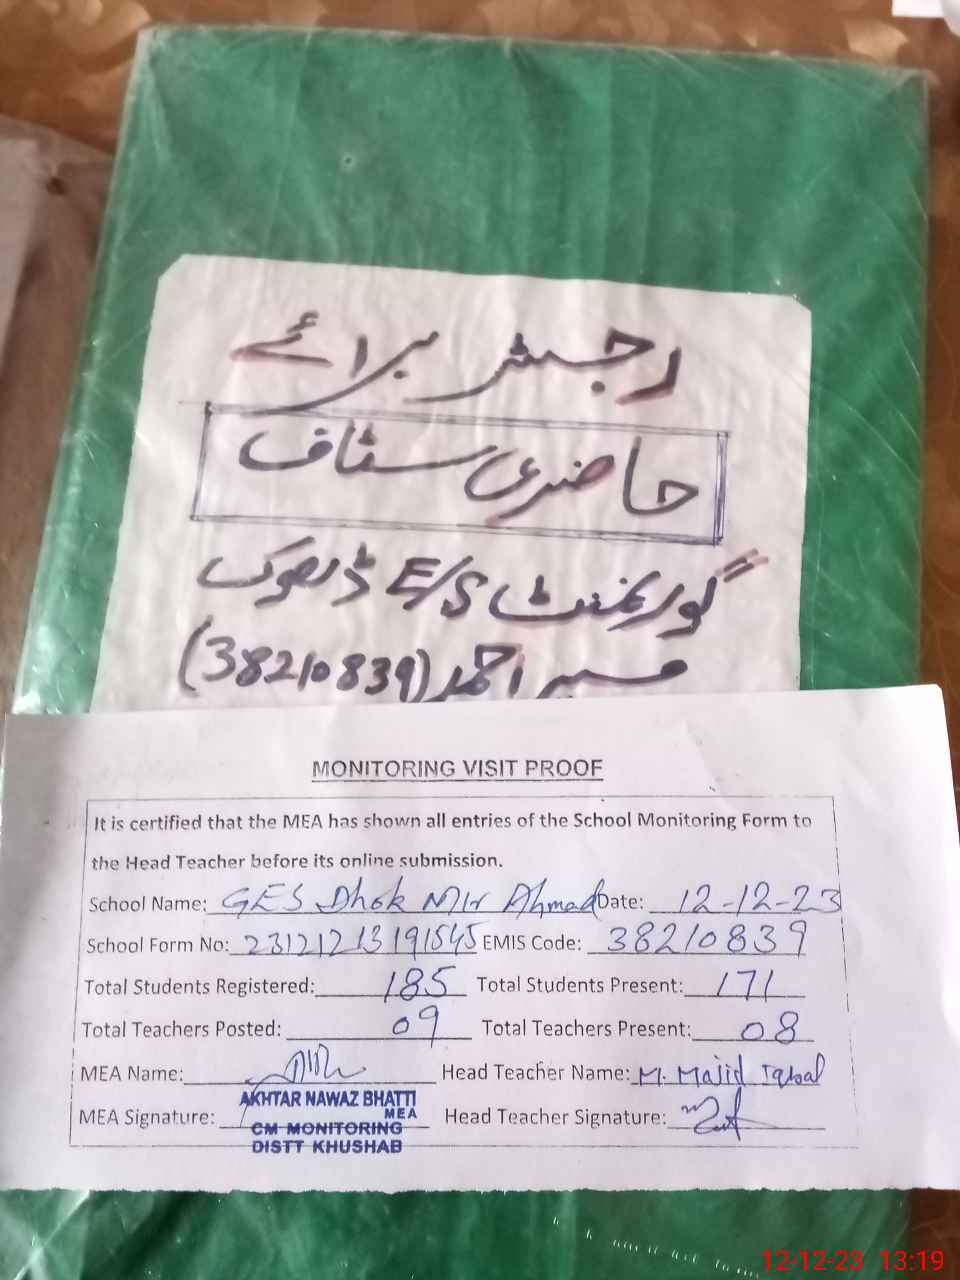 رجسٹر برائے
حاضری سٹاف
گورنمنٹ E/S ڈھوک
میر احمد (38210839)
MONITORING VISIT PROOF
It is certified that the MEA has shown all entries of the School Monitoring Form to
the Head Teacher before its online submission.
School Name: GES Dhok Mir Ahmad Date: 12-12-23
School Form No: 23121213191545 EMIS Code: 38210839
Total Students Registered: 185 Total Students Present: 171
Total Teachers Posted: 09 Total Teachers Present: 08
MEA Name: Head Teacher Name: M. Majid Iqbal
MEA Signature: AKHTAR NAWAZ BHATTI Head Teacher Signature:
MEA
CM MONITORING
DISTT KHUSHAB
12-12-23 13:19